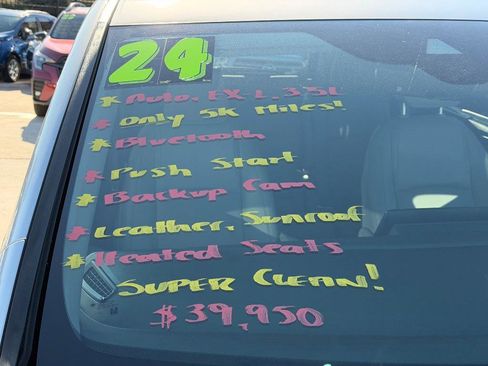 24
* Auto, EX-L, 3.5L
* Only 5K Miles!
* Bluetooth
* Push Start
* Backup Cam
* Leather, Sunroof
* Heated Seats
Super Clean!
$39,950